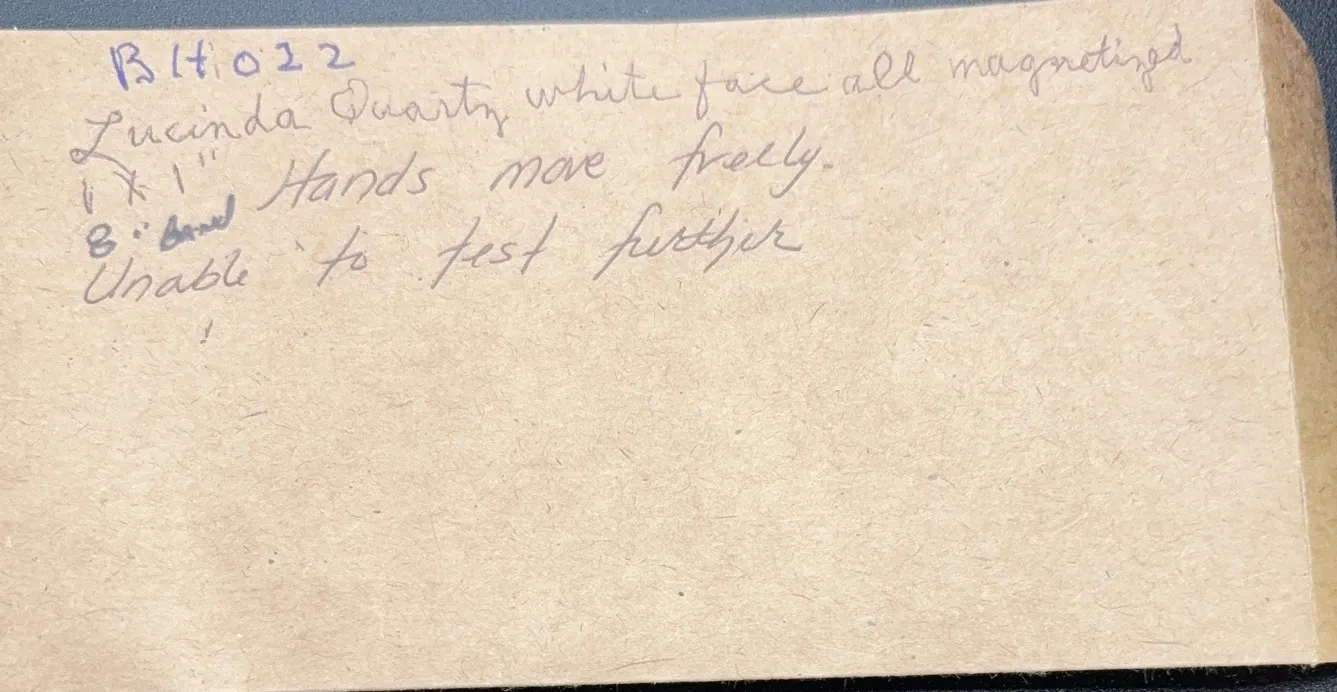 BH.022
Lucinda Quartz white face all magnetized
1 X 1" Hands move freely.
8" band
Unable to test further